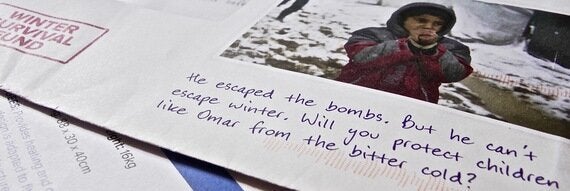 WINTER
SURVIVAL
FUND
He escaped the bombs. But he can't
escape winter. Will you protect children
like Omar from the bitter cold?
x 30 x 40cm
16kg